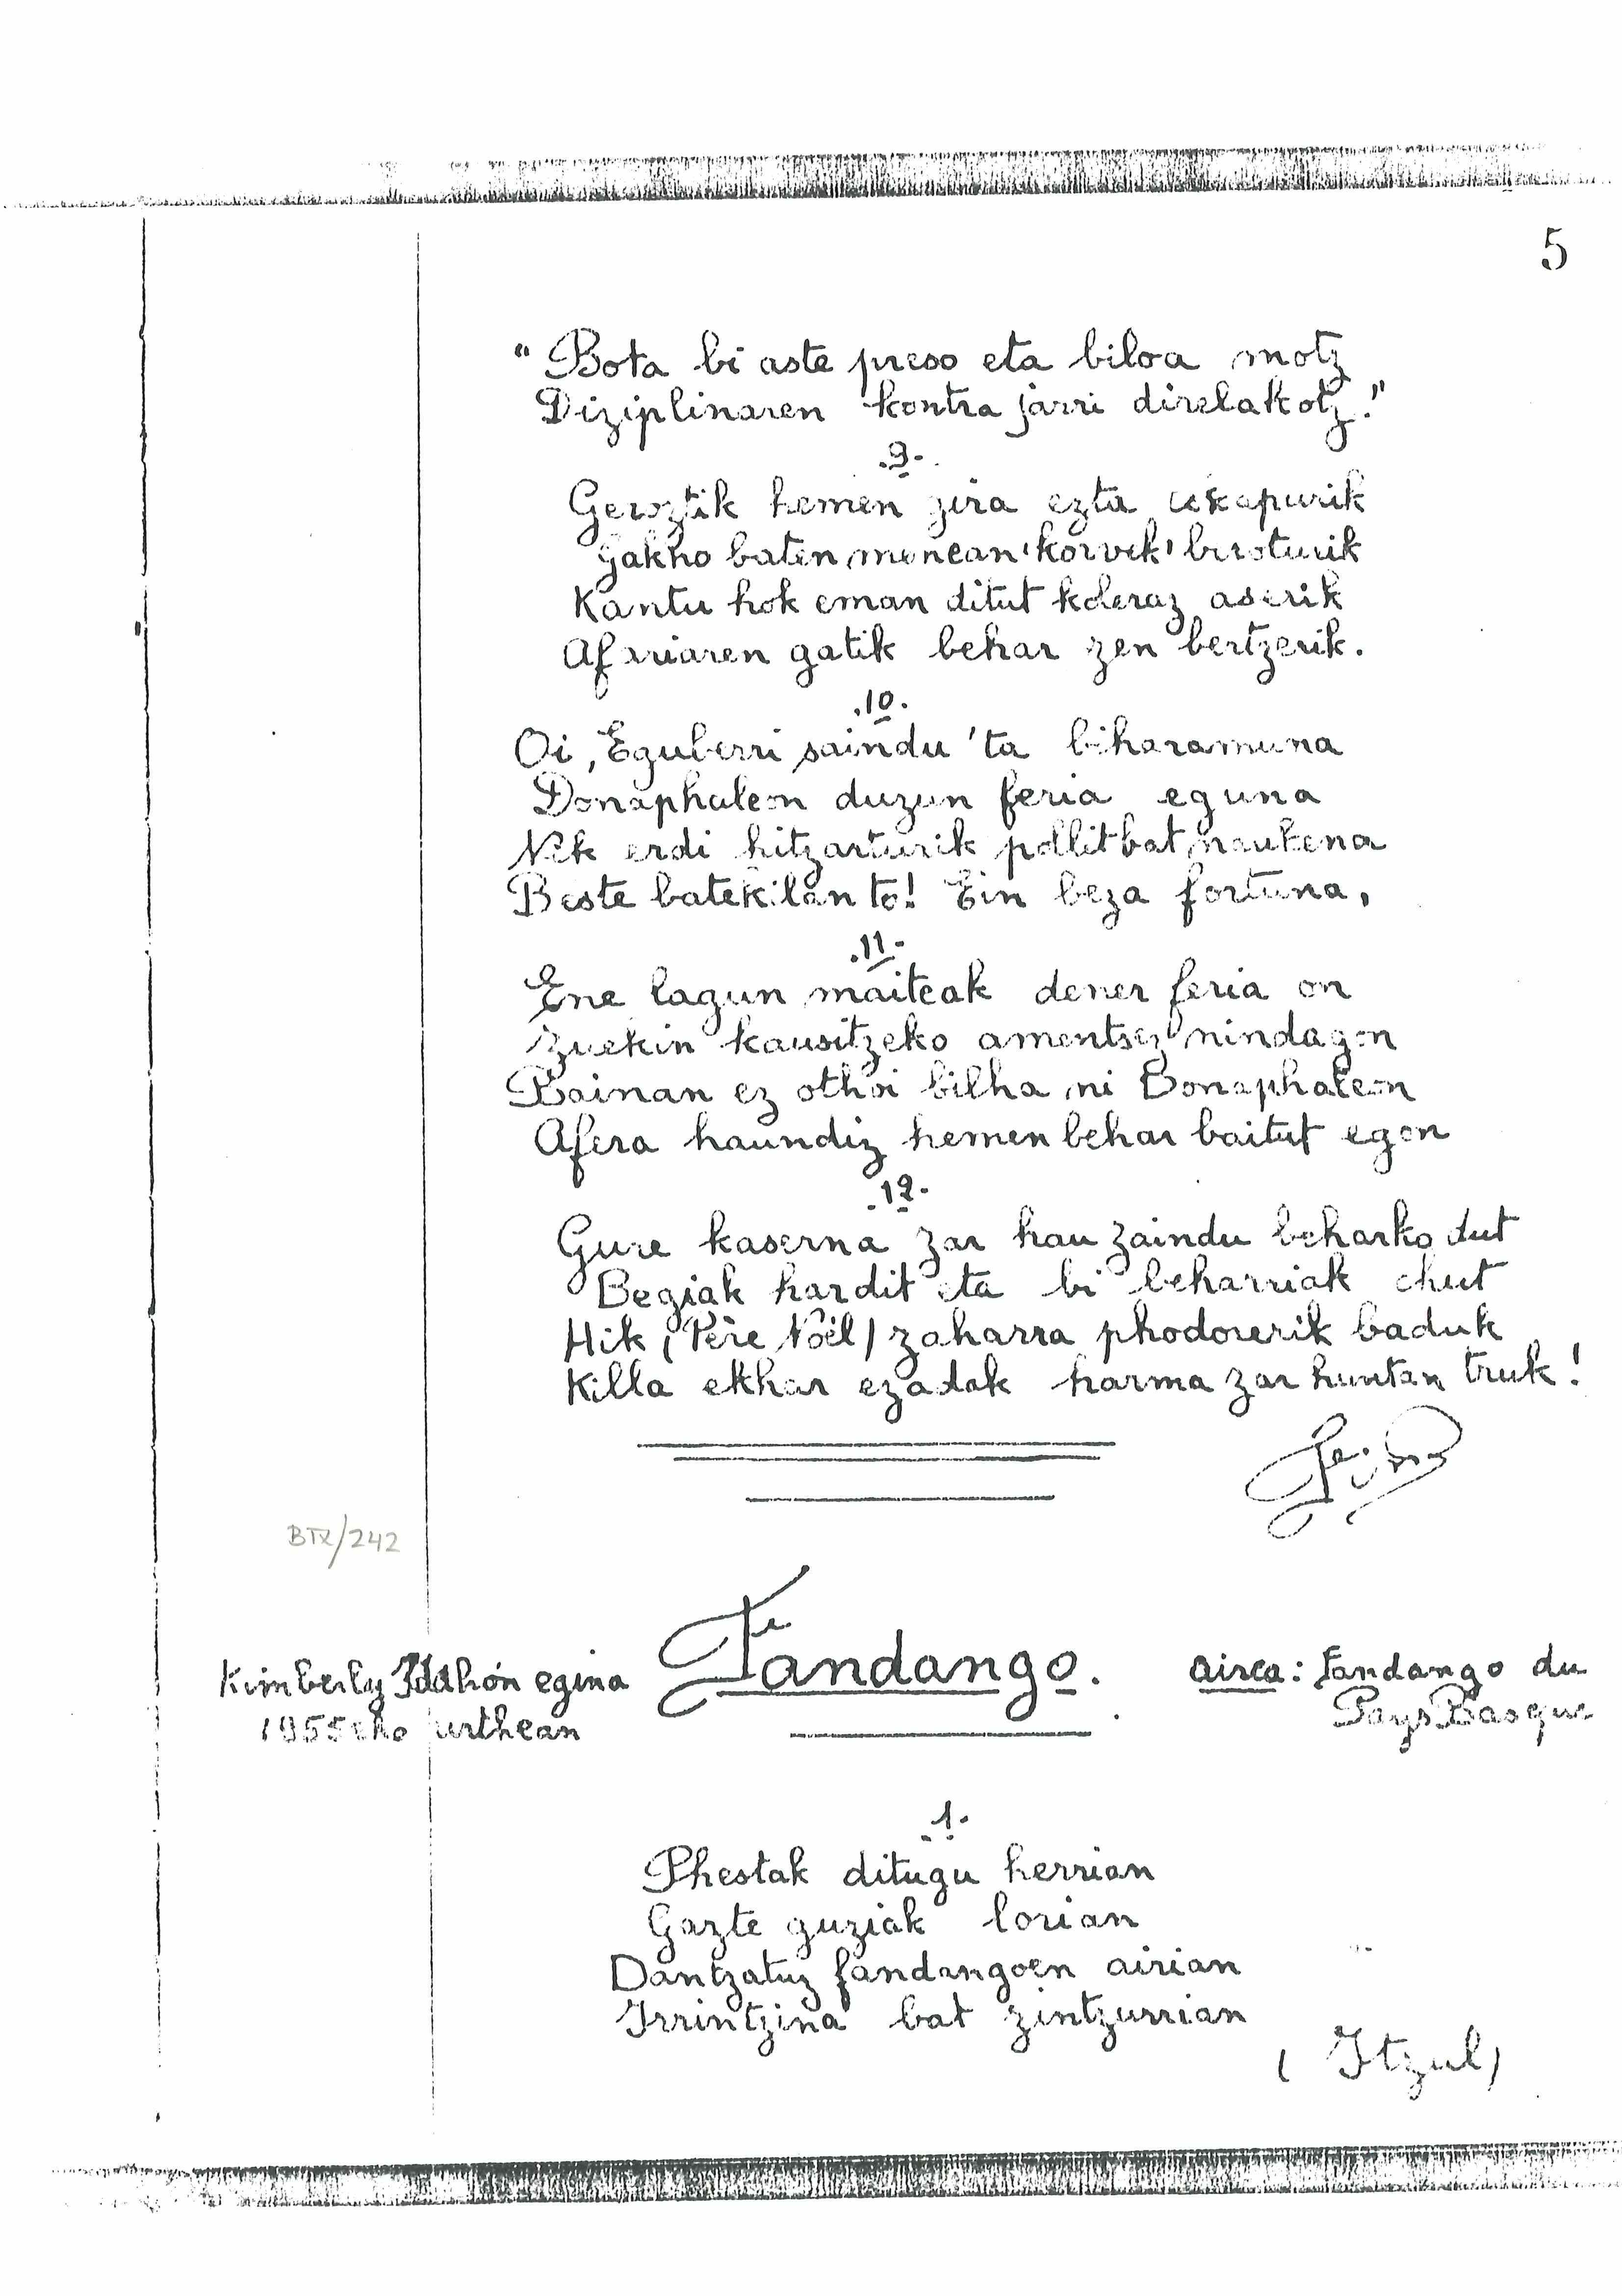 5
"Bota bi aste preso eta biloa motz
Diziplinaren kontra jarri direlakotz!"
.9.
Geroztik hemen gira ezta eskapurik
Gakho baten menean 'korvek' buroturik
Kantu hok eman ditut koleraz aserik
Afariaren gatik behar zen bertzerik.
.10.
Oi, Eguberri saindu 'ta biharamuna
Donaphaleon duzun feria eguna
Nik erdi hitzarturik pollit bat naukena
Beste batekilan to! Ein beza fortuna,
.11.
Ene lagun maiteak dener feria on
Zuekin kausitzeko amentsez nindagon
Bainan ez othoi bilha ni Donaphaleon
Afera haundiz hemen behar baitut egon
.12.
Gure kaserna zar hau zaindu beharko dut
Begiak hardit eta bi beharriak chut
Hik (Père Noël) zaharra phodorerik baduk
Killa ekhar ezadak harma zar huntan truk!
BTX/242
Fandango.
Kimberly Idahon egina
1955eko urthean
airea: Fandango du
Pays Basque
.1.
Phestak ditugu herrian
Gazte guziak lorian
Dantzatuz fandangoen airian
Irrintzina bat zintzurrian
(Itzul)